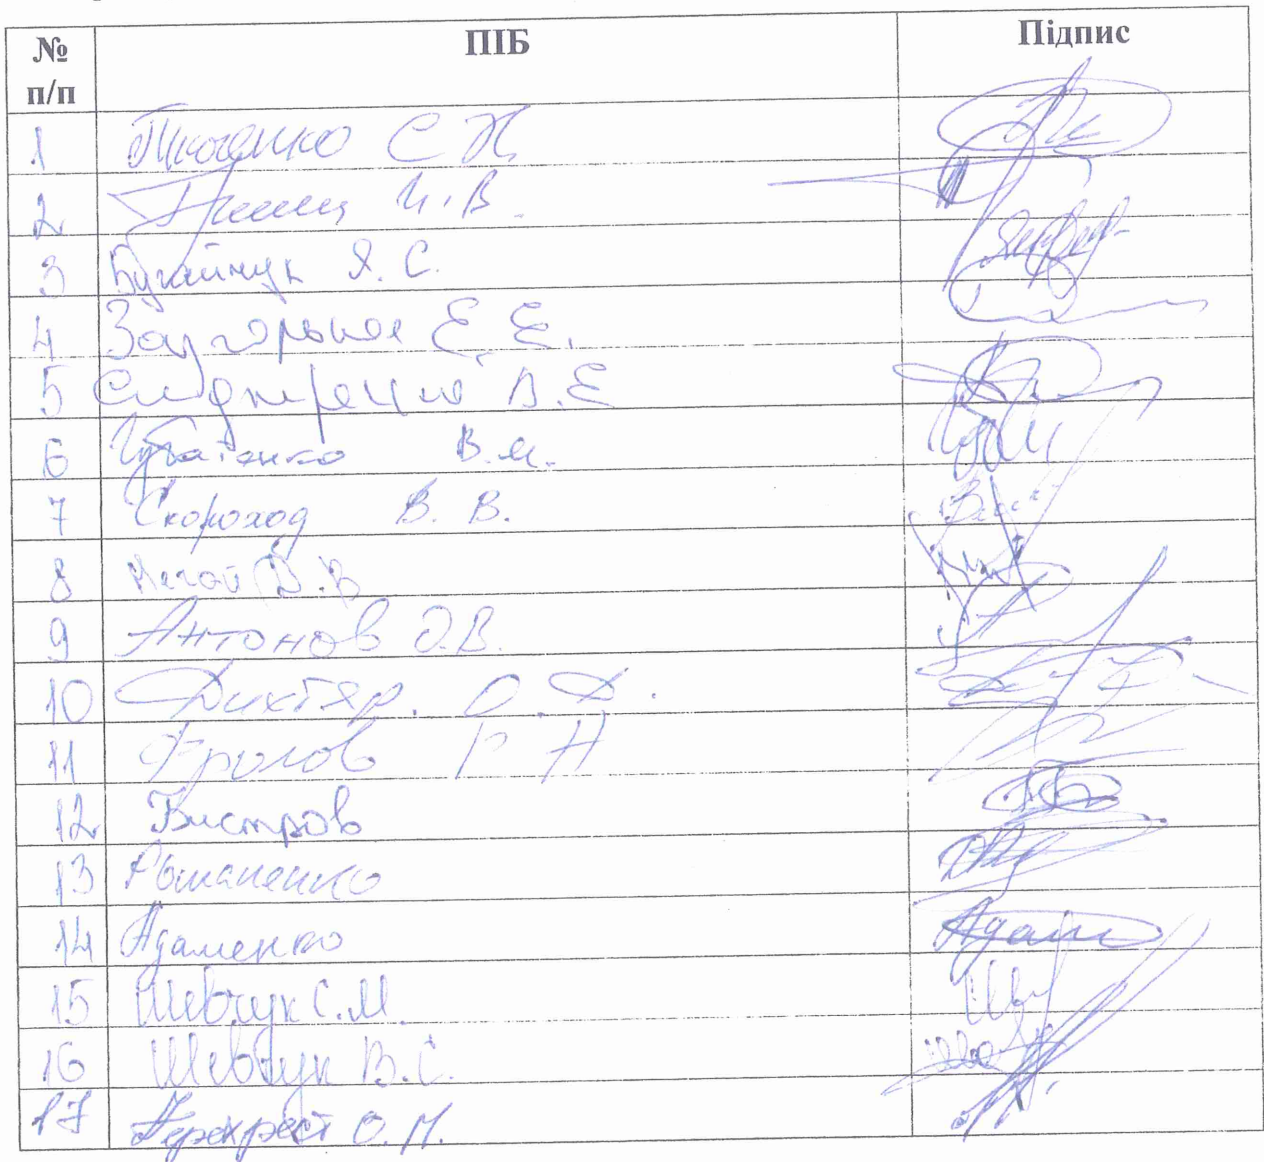 № п/п ПІБ Підпис
1 Ткаченко С
2 И.В.
3 Бугайчук Я. С.
4 Загорська Е. Е.
5 А.Е
6 В.М.
7 Скороход В. В.
8 Нагай В.В
9 Антонов О.В.
10 Дихтяр. О. Д.
11 Фролов Г Н
12 Бистров
13 Романенко
14 Адаменко
15 Шевчук С.М.
16 Шевчук В.С.
17 Перехрест О.М.